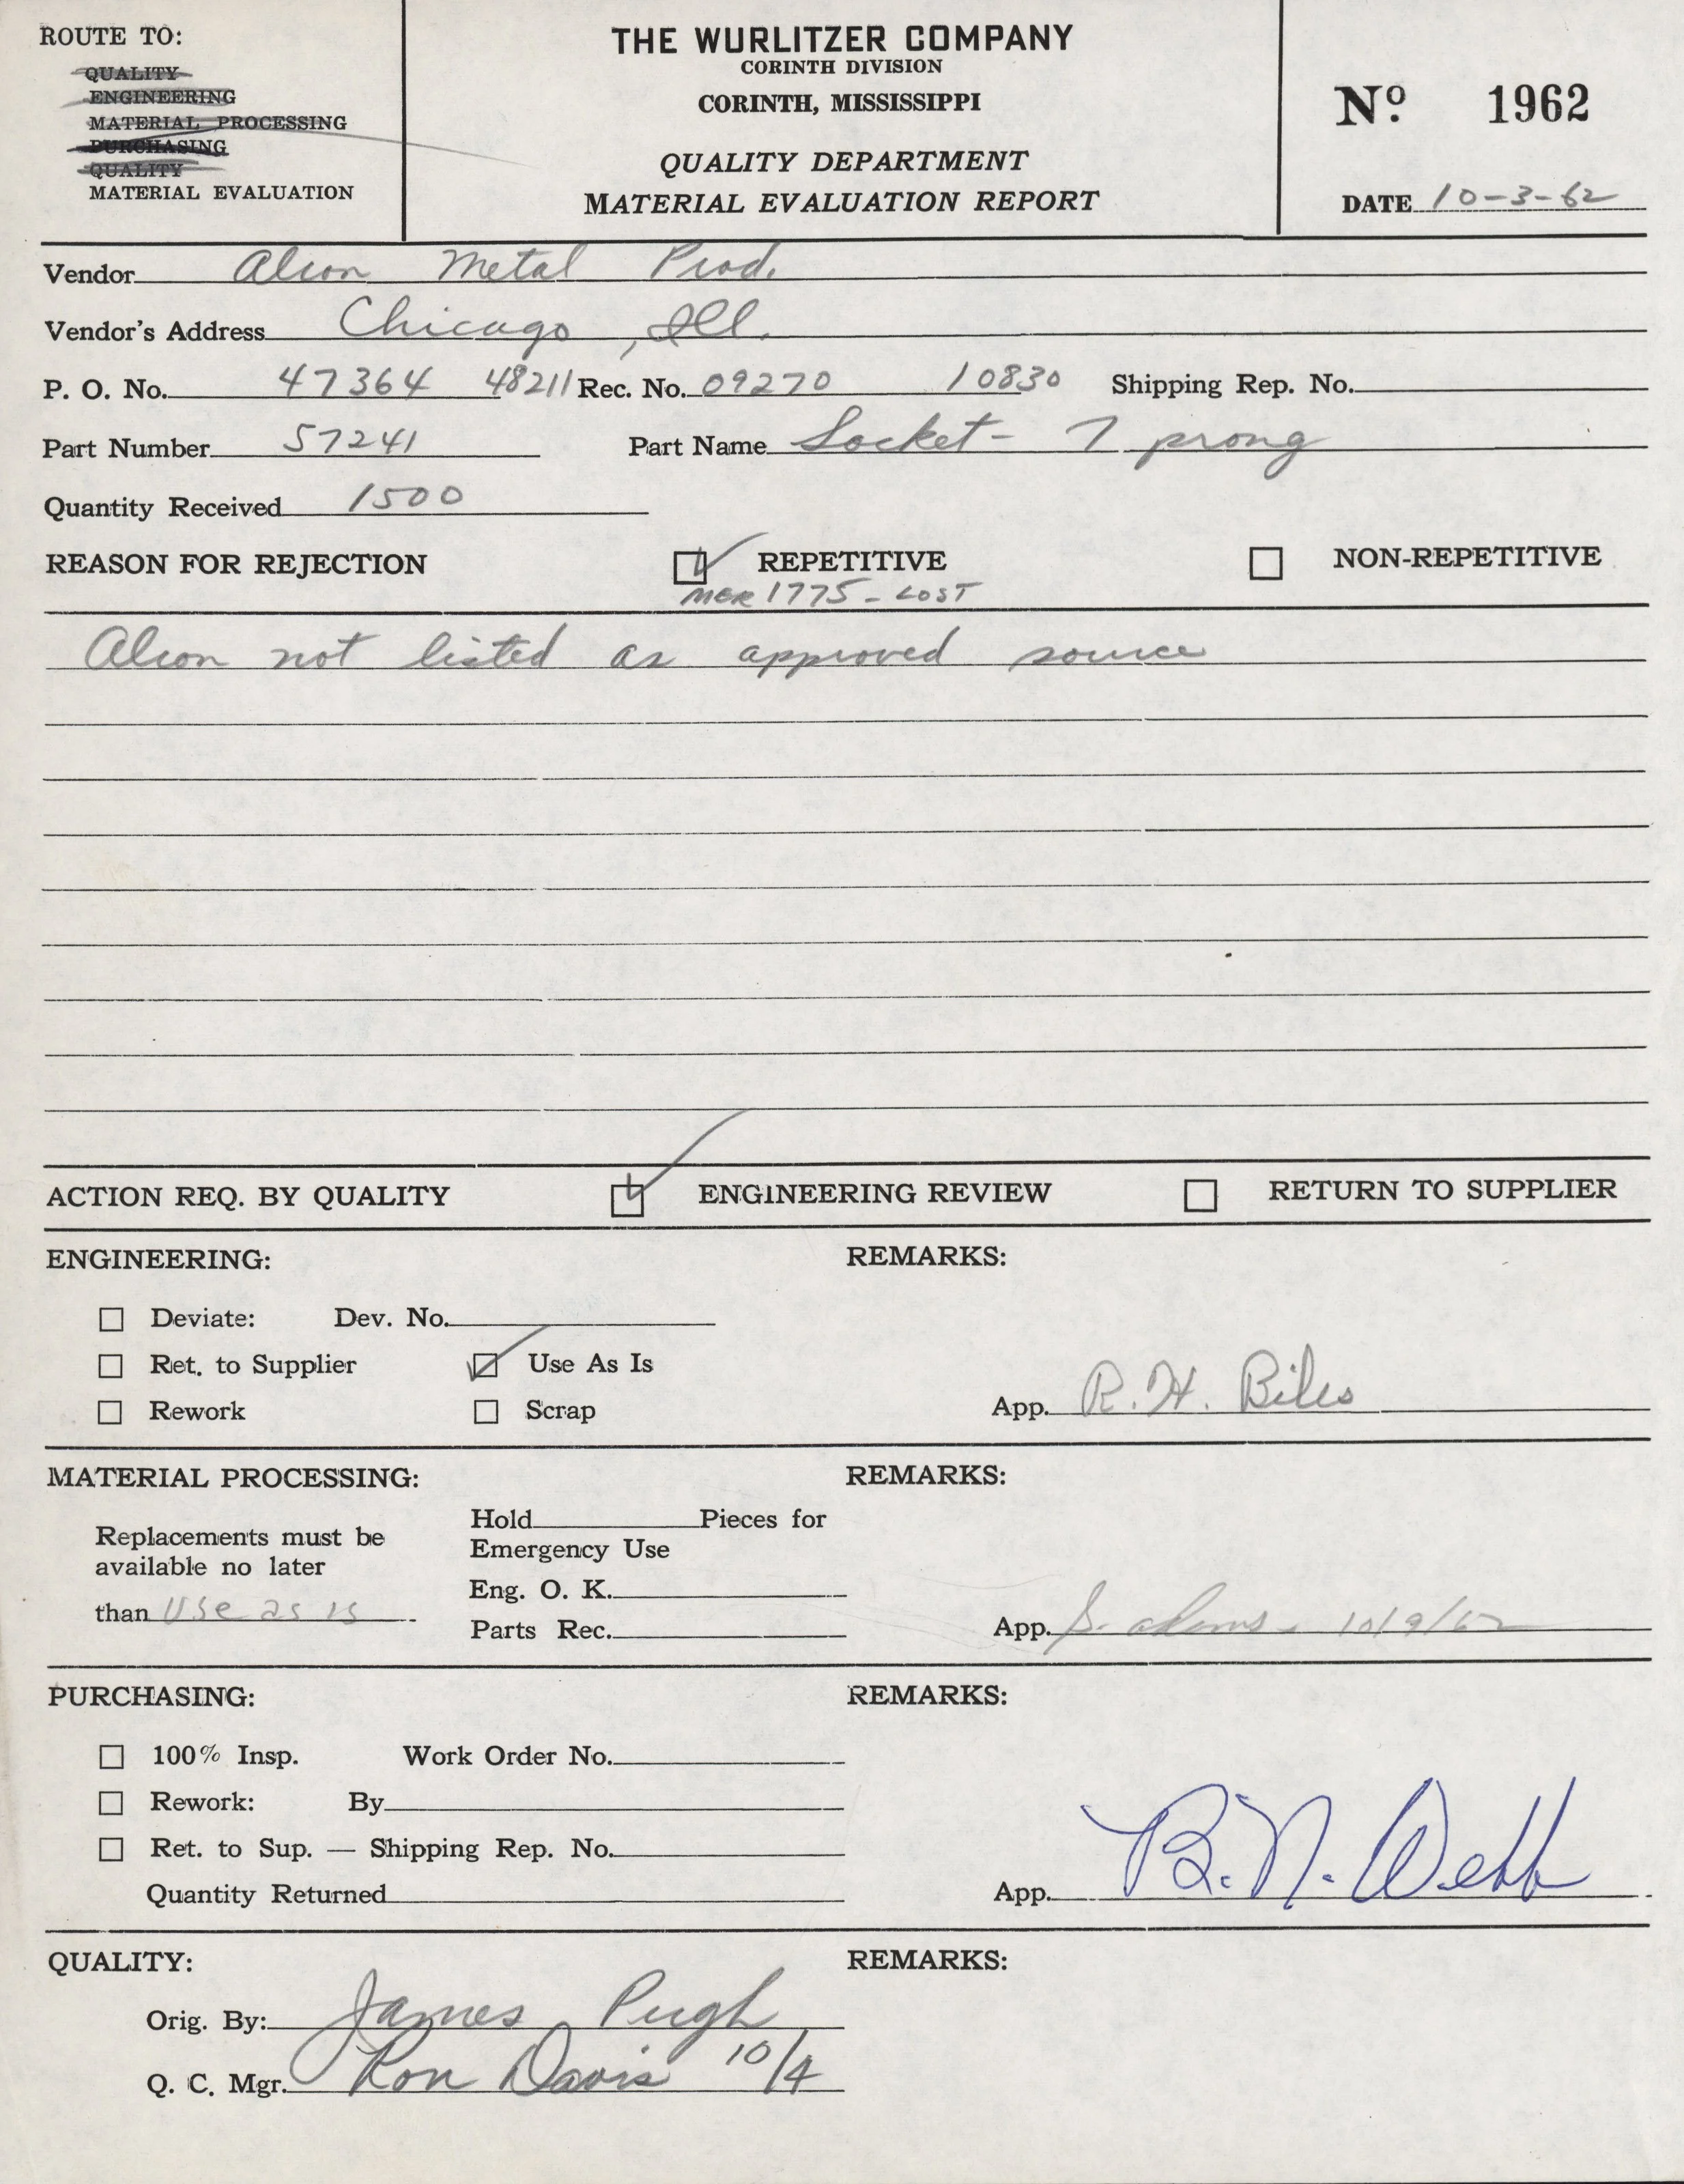 ROUTE TO:
QUALITY
ENGINEERING
MATERIAL PROCESSING
PURCHASING
QUALITY
MATERIAL EVALUATION
THE WURLITZER COMPANY
CORINTH DIVISION
CORINTH, MISSISSIPPI
QUALITY DEPARTMENT
MATERIAL EVALUATION REPORT
Nº 1962
DATE 10-3-62
Vendor Alcon Metal Prod.
Vendor's Address Chicago, Ill.
P. O. No. 47364 48211 Rec. No. 09270 10830 Shipping Rep. No.
Part Number 57241 Part Name Socket - 7 prong
Quantity Received 1500
REASON FOR REJECTION REPETITIVE NON-REPETITIVE
MER 1775 - LOST
Alcon not listed as approved source
ACTION REQ. BY QUALITY ENGINEERING REVIEW RETURN TO SUPPLIER
ENGINEERING: REMARKS:
Deviate: Dev. No.
Ret. to Supplier Use As Is
Rework Scrap App. R. H. Biles
MATERIAL PROCESSING: REMARKS:
Replacements must be
available no later
than Use as is
Hold Pieces for
Emergency Use
Eng. O. K.
Parts Rec.
App. S. Adams 10/9/62
PURCHASING: REMARKS:
100% Insp. Work Order No.
Rework: By
Ret. to Sup. — Shipping Rep. No.
Quantity Returned App. B. N. Webb
QUALITY: REMARKS:
Orig. By: James Pugh
Q. C. Mgr. Ron Davis 10/4